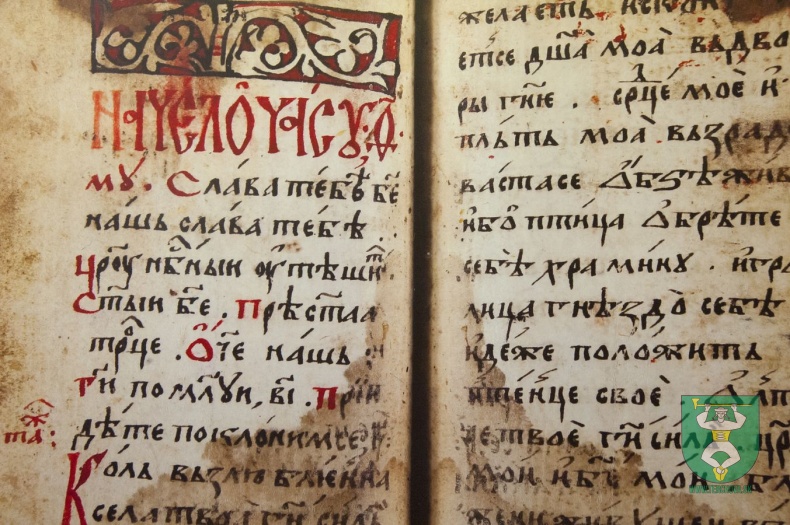 Начело часу ѳ҃
му. Слава тебѣ бе҃
нашь слава тебѣ
црⷭ҇оу нбⷭ҇ныи оутѣшитⷧ
Ст҃ыи бе҃. Прѣст҃аа
трⷪ҇це. Ѡч҃е нашь
ги҃ помлⷭ҇уи, в҃і. Прїи
таⷤ: дѣте поклонимсе
Коль вьзлюблⷤенна
села твоѐ ги҃ силь
жела еть
етсе дш҃а моа вь дво
ры гн҃ие. срⷣце мое и
пльть моа вьзрад
васта се ѡ бѕѣ живⷨ
ибо птица ѡбрѣте
себѣ храмину. игрⷧ
лица гнѣздо себѣ
идеже положить
птенце свое ѡлт
ре твое ги҃ силь. црⷭ҇
мои и бе҃ мои. бл